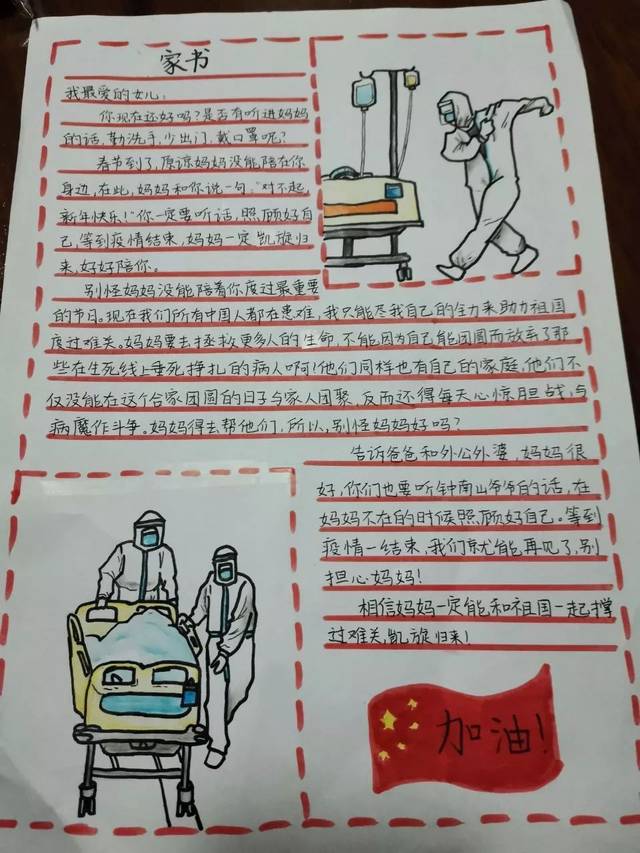 家书
我最爱的女儿：
你现在还好吗？是否有听进妈妈
的话，勤洗手，少出门，戴口罩呢？
春节到了，原谅妈妈没能陪在你
身边，在此，妈妈和你说一句，“对不起，
新年快乐！”你一定要听话，照顾好自
己，等到疫情结束，妈妈一定凯旋归
来，好好陪你。
别怪妈妈没能陪着你度过最重要
的节日。现在我们所有中国人都在患难，我只能尽我自己的全力来助力祖国
度过难关。妈妈要去拯救更多人的生命，不能因为自己能团圆而放弃了那
些在生死线上垂死挣扎的病人啊！他们同样也有自己的家庭，他们不
仅没能在这个合家团圆的日子与家人团聚，反而还得每天心惊胆战，与
病魔作斗争。妈妈得去帮他们，所以，别怪妈妈好吗？
告诉爸爸和外公外婆，妈妈很
好，你们也要听钟南山爷爷的话，在
妈妈不在的时候照顾好自己。等到
疫情一结束，我们就能再见了，别
担心妈妈！
相信妈妈一定能和祖国一起撑
过难关，凯旋归来！
加油！